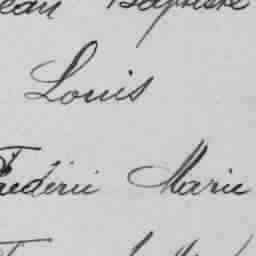 Jean Baptiste
Louis
Frédéric Marie